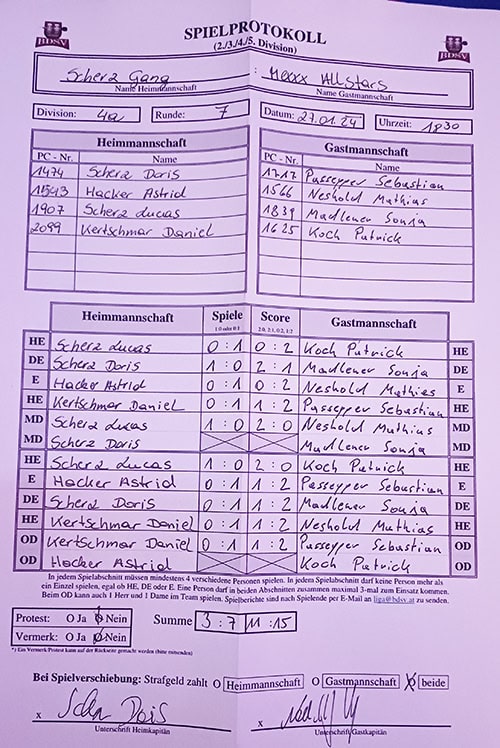 SPIELPROTOKOLL
(2./3./4./5. Division)
BDSV
BDSV
Scherz Gang : Mexxx Allstars
Name Heimmannschaft Name Gastmannschaft
Division: 4a Runde: 7 Datum: 27.01.24 Uhrzeit: 1830
Heimmannschaft Gastmannschaft
PC - Nr. Name PC - Nr. Name
1474 Scherz Doris 1717 Passeyper Sebastian
1543 Hacker Astrid 1566 Neshold Mathias
1907 Scherz Lucas 1839 Madlener Sonja
2099 Kertschmar Daniel 1625 Koch Patrick
Heimmannschaft Spiele Score Gastmannschaft
1:0 oder 0:1 2:0, 2:1, 0:2, 1:2
HE Scherz Lucas 0 : 1 0 : 2 Koch Patrick HE
DE Scherz Doris 1 : 0 2 : 1 Madlener Sonja DE
E Hacker Astrid 0 : 1 0 : 2 Neshold Mathias E
HE Kertschmar Daniel 0 : 1 1 : 2 Passeyper Sebastian HE
MD Scherz Lucas 1 : 0 2 : 0 Neshold Mathias MD
MD Scherz Doris Madlener Sonja MD
HE Scherz Lucas 1 : 0 2 : 0 Koch Patrick HE
E Hacker Astrid 0 : 1 1 : 2 Passeyper Sebastian E
DE Scherz Doris 0 : 1 1 : 2 Madlener Sonja DE
HE Kertschmar Daniel 0 : 1 1 : 2 Neshold Mathias HE
OD Kertschmar Daniel 0 : 1 1 : 2 Passeyper Sebastian OD
OD Hacker Astrid Koch Patrick OD
In jedem Spielabschnitt müssen mindestens 4 verschiedene Personen spielen. In jedem Spielabschnitt darf keine Person mehr als
ein Einzel spielen, egal ob HE, DE oder E. Eine Person darf in beiden Abschnitten zusammen maximal 3-mal zum Einsatz kommen.
Beim OD kann auch 1 Herr und 1 Dame im Team spielen. Spielberichte sind nach Spielende per E-Mail an liga@bdsv.at zu senden.
Protest: O Ja O Nein Summe 3 : 7 11 : 15
Vermerk: O Ja O Nein
*) Ein Vermerk/Protest kann auf der Rückseite gemacht werden (bitte ankreuzen)
Bei Spielverschiebung: Strafgeld zahlt O Heimmannschaft O Gastmannschaft O beide
x Scherz Doris x
Unterschrift Heimkapitän Unterschrift Gastkapitän